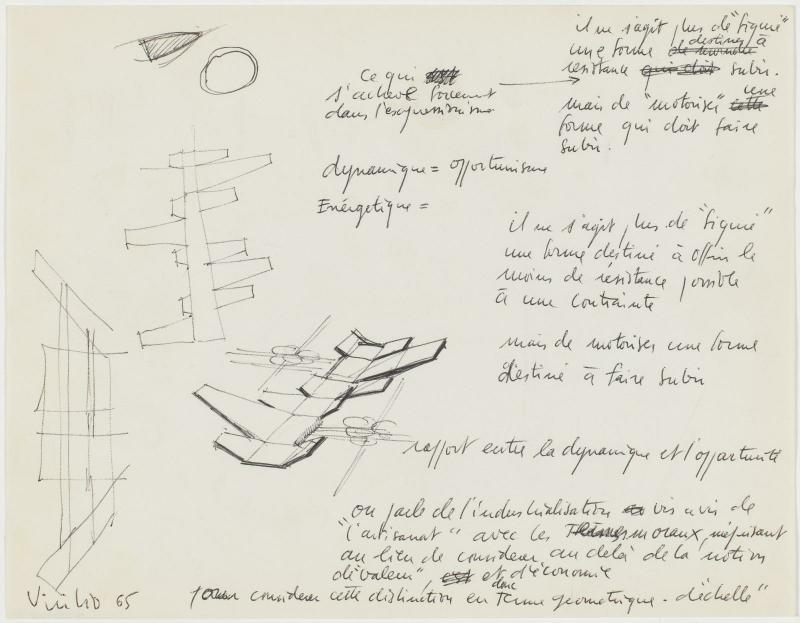 il ne s'agit plus de "figuré"
une forme destiné à
résistance qui doit subir.
mais de "motoriser" une
forme qui doit faire
subir.
Ce qui
s'achève forcément
dans l'expressionnisme
dynamique = opportunisme
Energetique =
il ne s'agit plus de "figuré"
une forme destiné à offrir le
moins de résistance possible
à une contrainte
mais de motoriser une forme
destiné à faire subir
rapport entre la dynamique et l'opportunité
on parle de l'industrialisation vis a vis de
"l'artisanat" avec les moraux, méprisant
au lieu de considerer au delà de la notion
de valeur", et d'économie
pour considerer cette distinction en donc Terme geometrique - d'echelle"
Virilio 65